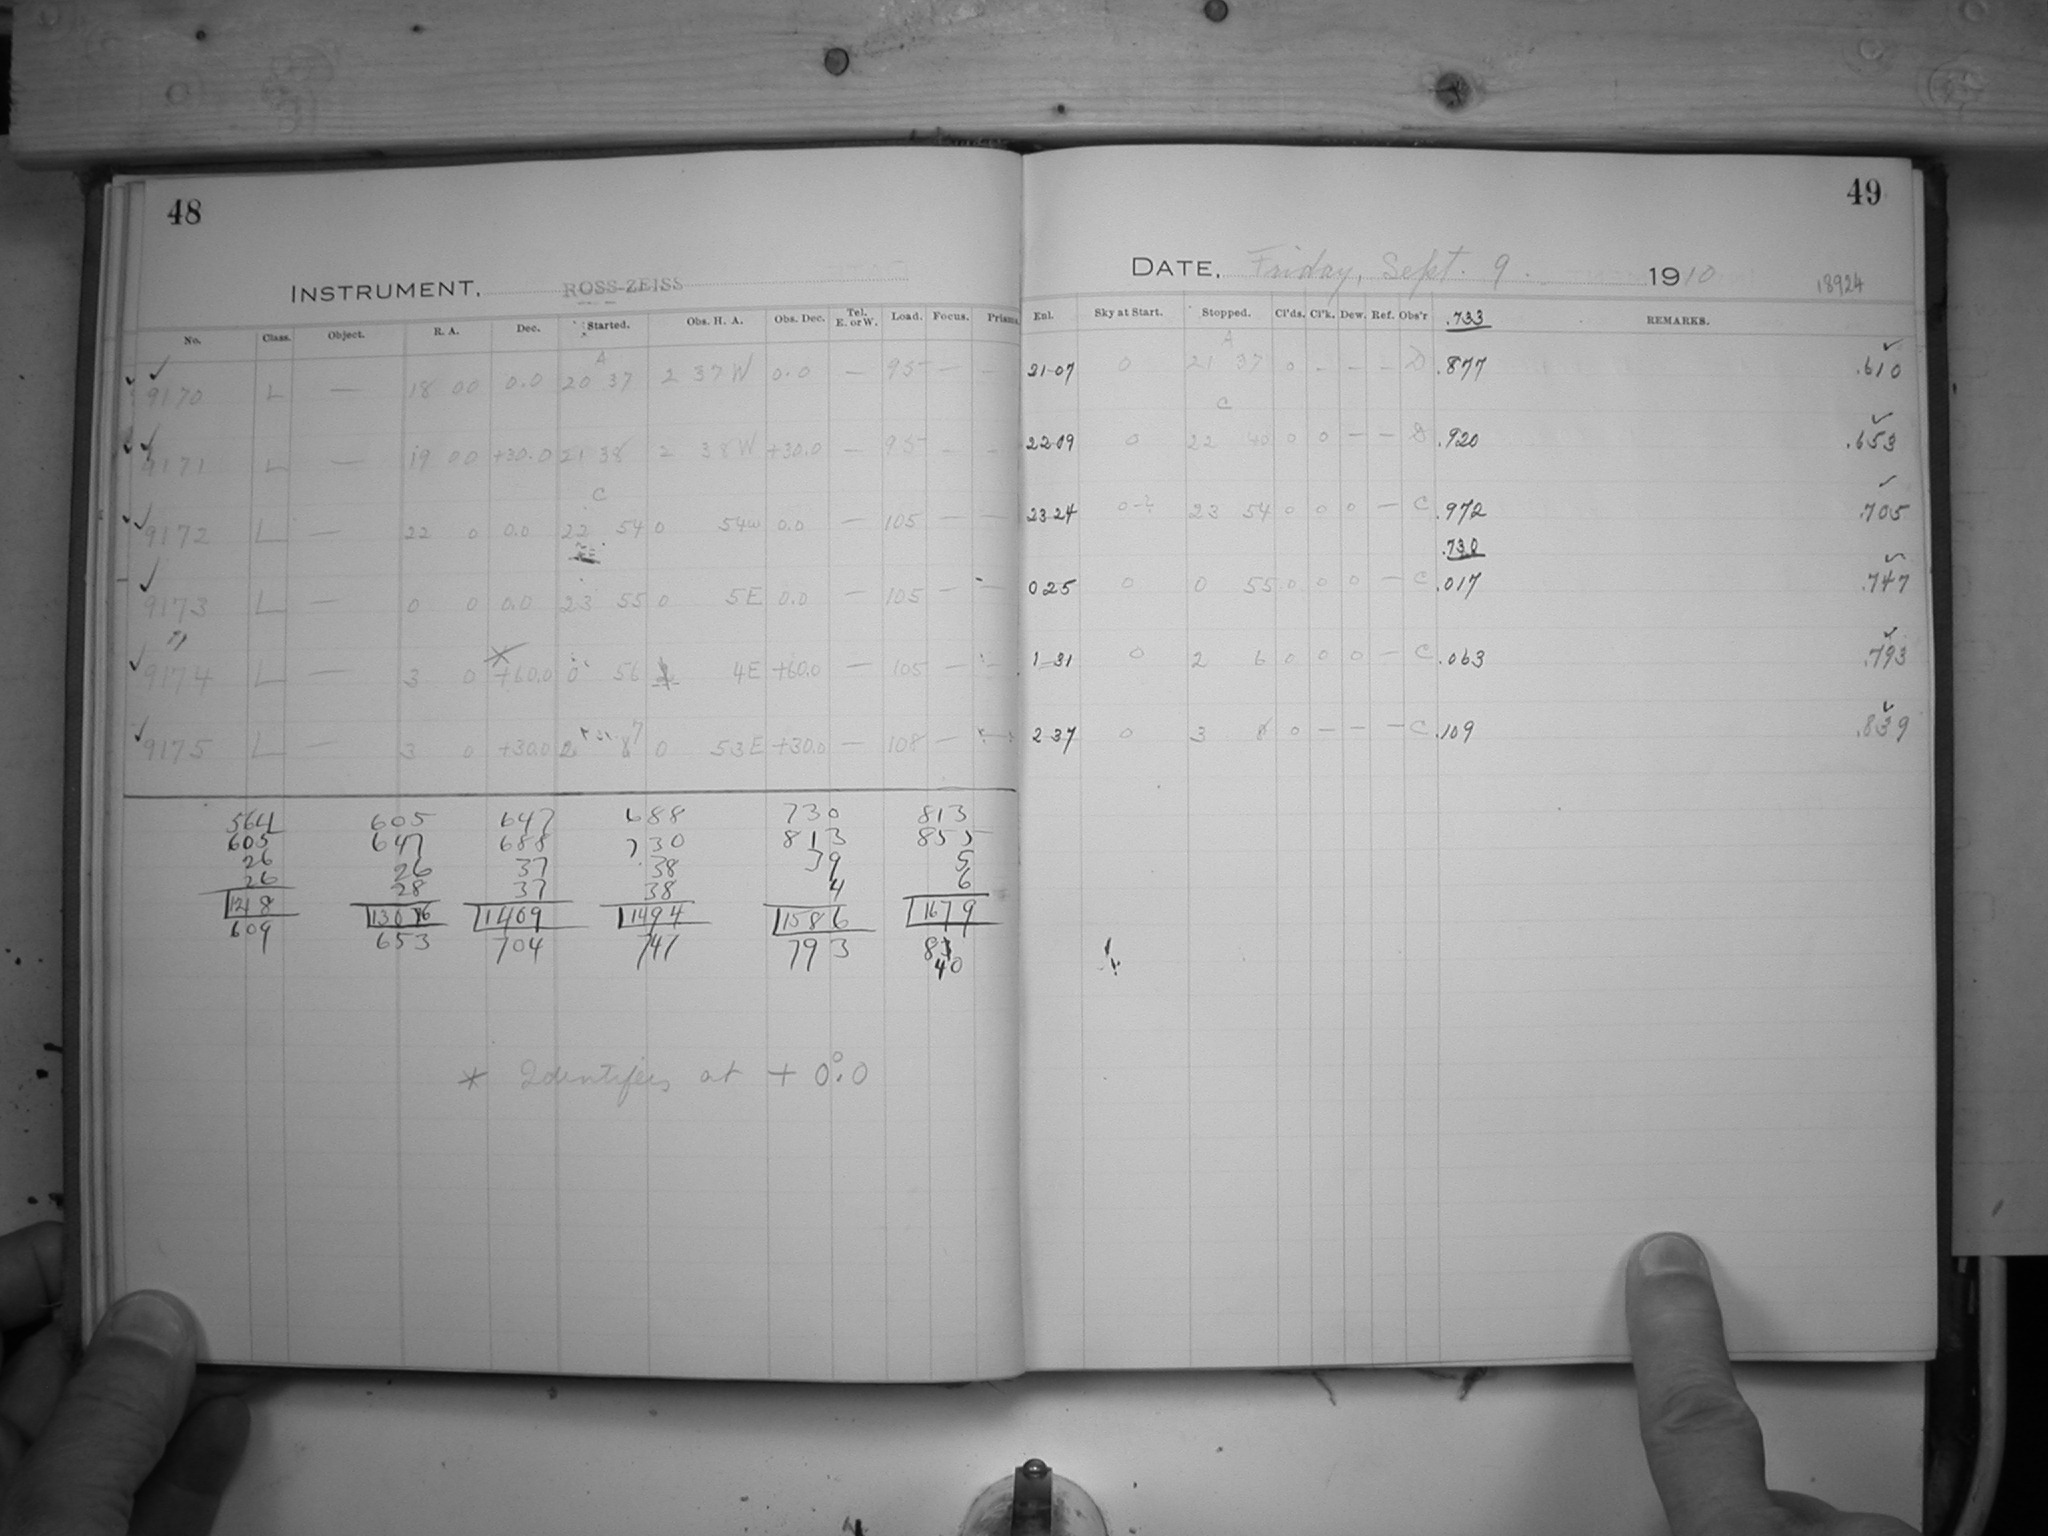 48
INSTRUMENT. ROSS-ZEISS
No. Class. Object. R. A. Dec. Started. Obs. H. A. Obs. Dec. Tel. E. or W. Load. Focus. Prism.
A
9170 L — 18 00 0.0 20 37 2 37 W 0.0 — 95 — —
9171 L — 19 00 +30.0 21 38 2 38 W +30.0 — 95 - -
C
9172 L — 22 0 0.0 22 54 0 54w 0.0 — 105 — —
9173 L — 0 0 0.0 23 55 0 5E 0.0 — 105 — —
9174 L — 3 0 +60.0 0 56 4E +60.0 — 105 — —
9175 L — 3 0 +30.0 2 7 0 53E +30.0 — 108 —
564 605 647 688 730 813
605 647 688 730 813 855
26 26 37 38 39 5
26 28 37 38 4 6
1218 1306 1409 1494 1586 1679
609 653 704 747 793 840
* Identifies at + 0°.0
49
DATE, Friday, Sept. 9. 1910
18924
Enl. Sky at Start. Stopped. Cl'ds. Cl'k. Dew. Ref. Obs'r .733 REMARKS.
A
21 07 0 21 37 0 - - - D .877 .610
C
22 09 0 22 40 0 0 — — D .920 .653
23 24 23 54 0 0 0 — C .972 .705
.730
0 25 0 0 55 0 0 0 — C .017 .747
1 31 0 2 6 0 0 0 — C .063 .793
2 37 0 3 8 0 — — — C .109 .839